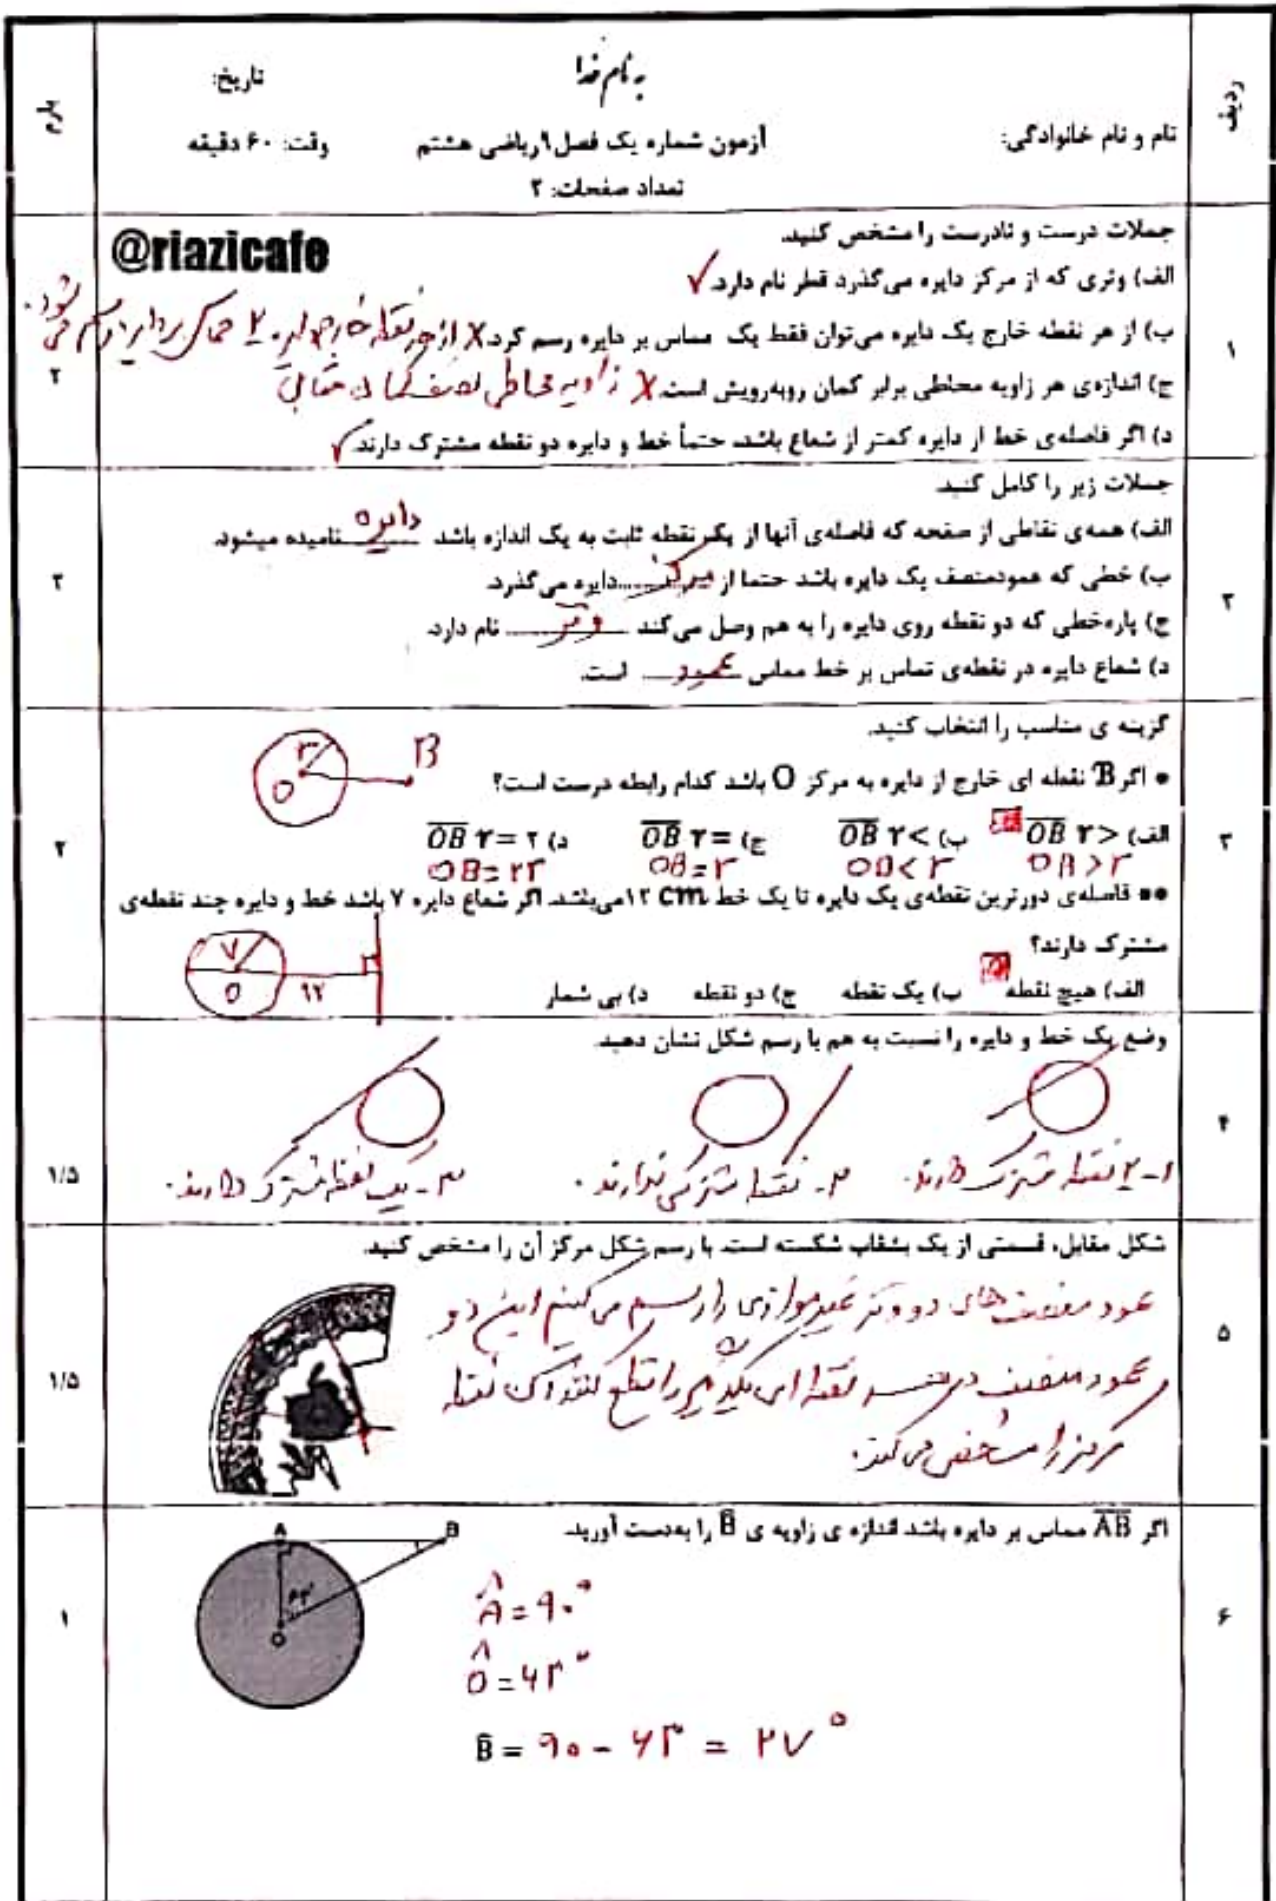 به نام خدا
تاریخ:
ردیف
نام و نام خانوادگی:
آزمون شماره یک فصل ۹ ریاضی هشتم
وقت: ۶۰ دقیقه
بارم
تعداد صفحات: ۲
جملات درست و نادرست را مشخص کنید.
@riazicafe
الف) وتری که از مرکز دایره می‌گذرد قطر نام دارد. ✓
ب) از هر نقطه خارج یک دایره می‌توان فقط یک مماس بر دایره رسم کرد. X از هر نقطه خارج دایره ۲ مماس بر دایره رسم می شود.
۱
۲
ج) اندازه‌ی هر زاویه محاطی برابر کمان روبه‌رویش است. X زاویه محاطی نصف کمان مقابل
د) اگر فاصله‌ی خط از دایره کمتر از شعاع باشد، حتماً خط و دایره دو نقطه مشترک دارند. ✓
جملات زیر را کامل کنید.
الف) همه‌ی نقاطی از صفحه که فاصله‌ی آنها از یک نقطه ثابت به یک اندازه باشد دایره نامیده میشود.
ب) خطی که عمودمنصف یک دایره باشد حتما از مرکز دایره می‌گذرد.
۲
۲
ج) پاره‌خطی که دو نقطه روی دایره را به هم وصل می‌کند وتر نام دارد.
د) شعاع دایره در نقطه‌ی تماس بر خط مماس عمود است.
گزینه ی مناسب را انتخاب کنید.
• اگر B نقطه ای خارج از دایره به مرکز O باشد کدام رابطه درست است؟
r B
O
۳
الف) OB r > ب) OB r < ج) OB r = د) OB r = ۲
۲
OB > r OB < r OB = r OB = ۲r
•• فاصله‌ی دورترین نقطه‌ی یک دایره تا یک خط ۱۲ cm می‌باشد. اگر شعاع دایره ۷ باشد خط و دایره چند نقطه‌ی
مشترک دارند؟
۷
O ۱۲
الف) هیچ نقطه ب) یک نقطه ج) دو نقطه د) بی شمار
وضع یک خط و دایره را نسبت به هم با رسم شکل نشان دهید.
۴
۱/۵
۱- ۲ نقطه مشترک دارند. ۲- نقطه مشترکی ندارند. ۳- یک نقطه مشترک دارند.
شکل مقابل، قسمتی از یک بشقاب شکسته است. با رسم شکل مرکز آن را مشخص کنید.
عمود منصف های دو وتر غیرموازی را رسم می کنیم این دو
۵
۱/۵
عمود منصف در نقطه ای یکدیگر را قطع کنند آن نقطه
مرکز را مشخص می کند.
اگر AB مماس بر دایره باشد اندازه ی زاویه ی B را به‌دست آورید.
A B
۶۳°
O
Â = ۹۰°
۶
۱
Ô = ۶۳°
B̂ = ۹۰ - ۶۳ = ۲۷°